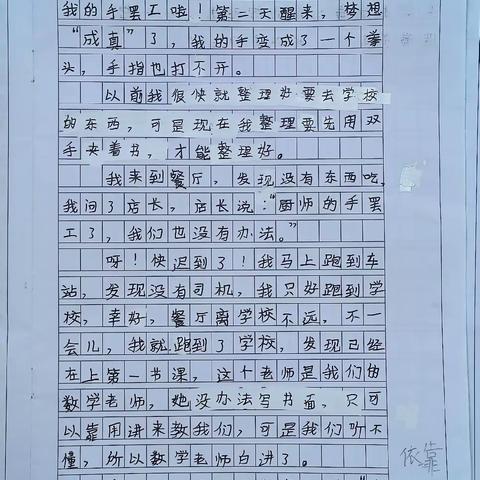 我的手罢工啦！第二天醒来，梦想
“成真”了，我的手变成了一个拳
头，手指也打不开。
以前我很快就整理好要去学校
的东西，可是现在我整理要先用双
手夹着书，才能整理好。
我来到餐厅，发现没有东西吃，
我问了店长，店长说：“厨师的手罢
工了，我们也没有办法。”
呀！快迟到了！我马上跑到车
站，发现没有司机，我只好跑到学
校，幸好，餐厅离学校不远，不一
会儿，我就跑到了学校，发现已经
在上第一节课，这个老师是我们的
数学老师，她没办法写书面，只可
以靠用讲来教我们，可是我们听不
懂，所以数学老师白讲了。
依靠